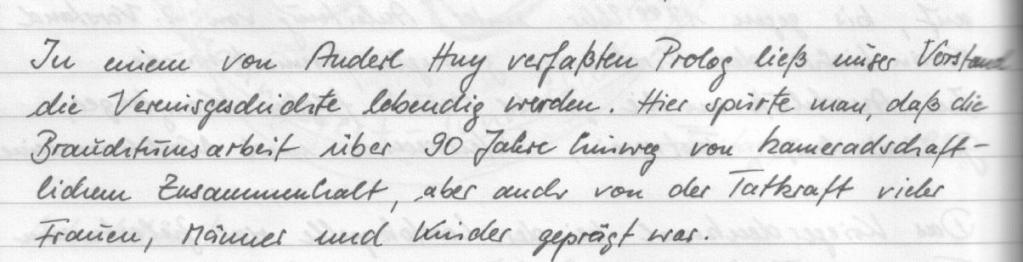 In einem von Anderl Huy verfaßten Prolog ließ unser Vorstand
die Vereinsgeschichte lebendig werden. Hier spürte man, daß die
Brauchtumsarbeit über 90 Jahre hinweg von kameradschaft-
lichem Zusammenhalt, aber auch von der Tatkraft vieler
Frauen, Männer und Kinder geprägt war.